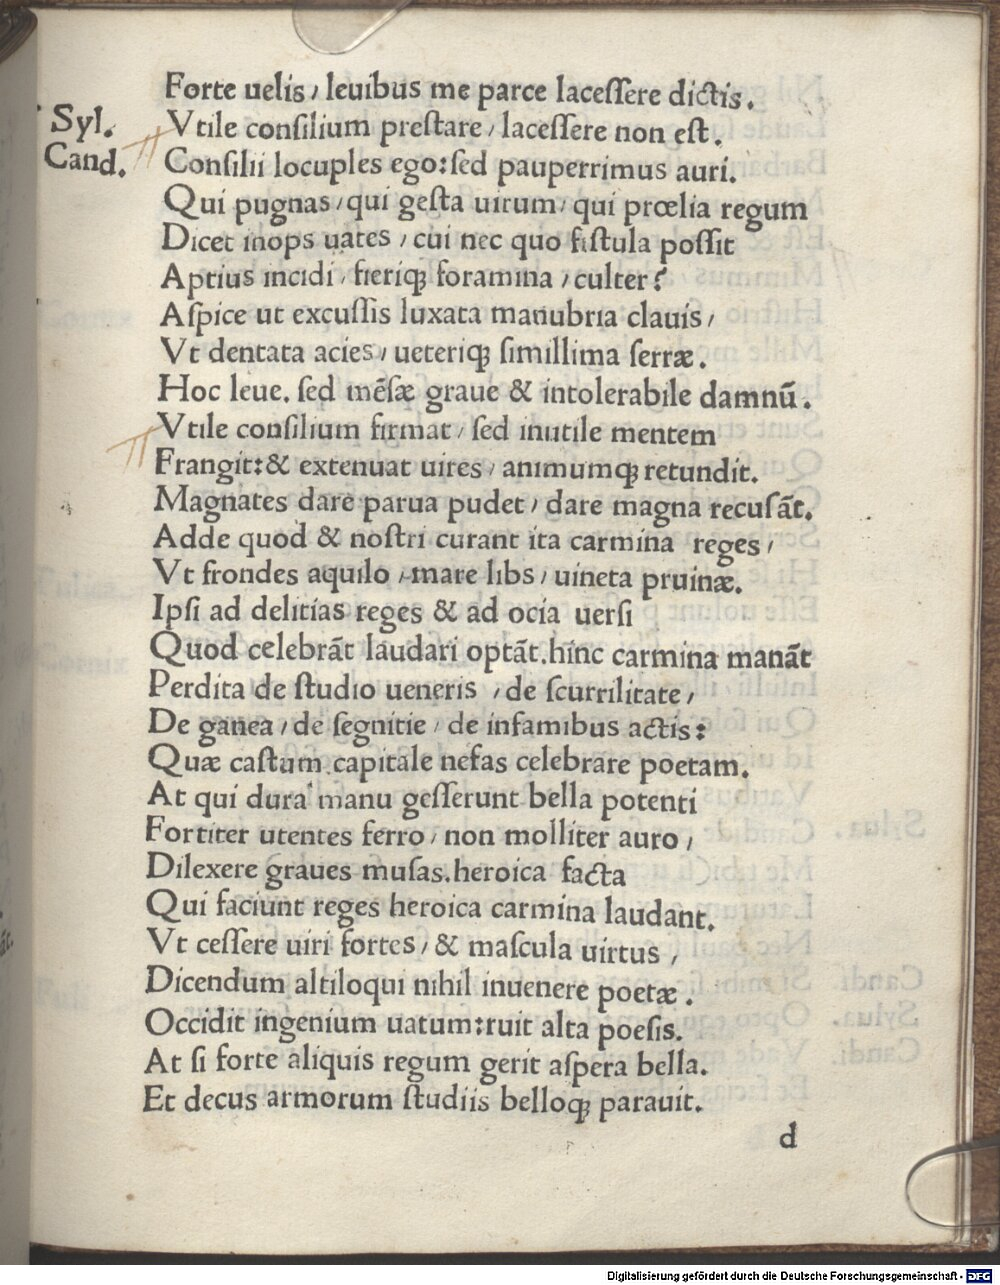 Forte uelis / leuibus me parce laceſſere dictis.
Syl. Vtile conſilium preſtare / laceſſere non eſt.
Cand. Conſilii locuples ego: ſed pauperrimus auri.
Qui pugnas / qui geſta uirum / qui prœlia regum
Dicet inops uates / cui nec quo fiſtula poſſit
Aptius incidi / fieriqꝫ foramina / culter?
Aſpice ut excuſſis luxata manubria clauis /
Vt dentata acies / ueteriqꝫ ſimillima ſerræ.
Hoc leue. ſed mēſæ graue & intolerabile damnū.
Vtile conſilium firmat / ſed inutile mentem
Frangit: & extenuat uires / animumqꝫ retundit.
Magnates dare parua pudet / dare magna recuſāt.
Adde quod & noſtri curant ita carmina reges /
Vt frondes aquilo / mare libs / uineta pruinæ.
Ipſi ad delitias reges & ad ocia uerſi
Quod celebrāt laudari optāt. hinc carmina manāt
Perdita de ſtudio ueneris / de ſcurrilitate /
De ganea / de ſegnitie / de infamibus actis:
Quæ caſtum capitale nefas celebrare poetam.
At qui dura manu geſſerunt bella potenti
Fortiter utentes ferro / non molliter auro /
Dilexere graues muſas. heroica facta
Qui faciunt reges heroica carmina laudant.
Vt ceſſere uiri fortes / & maſcula uirtus /
Dicendum altiloqui nihil inuenere poetæ.
Occidit ingenium uatum: ruit alta poeſis.
At ſi forte aliquis regum gerit aſpera bella.
Et decus armorum ſtudiis belloqꝫ parauit.
d
Digitalisierung gefördert durch die Deutsche Forschungsgemeinschaft - DFG